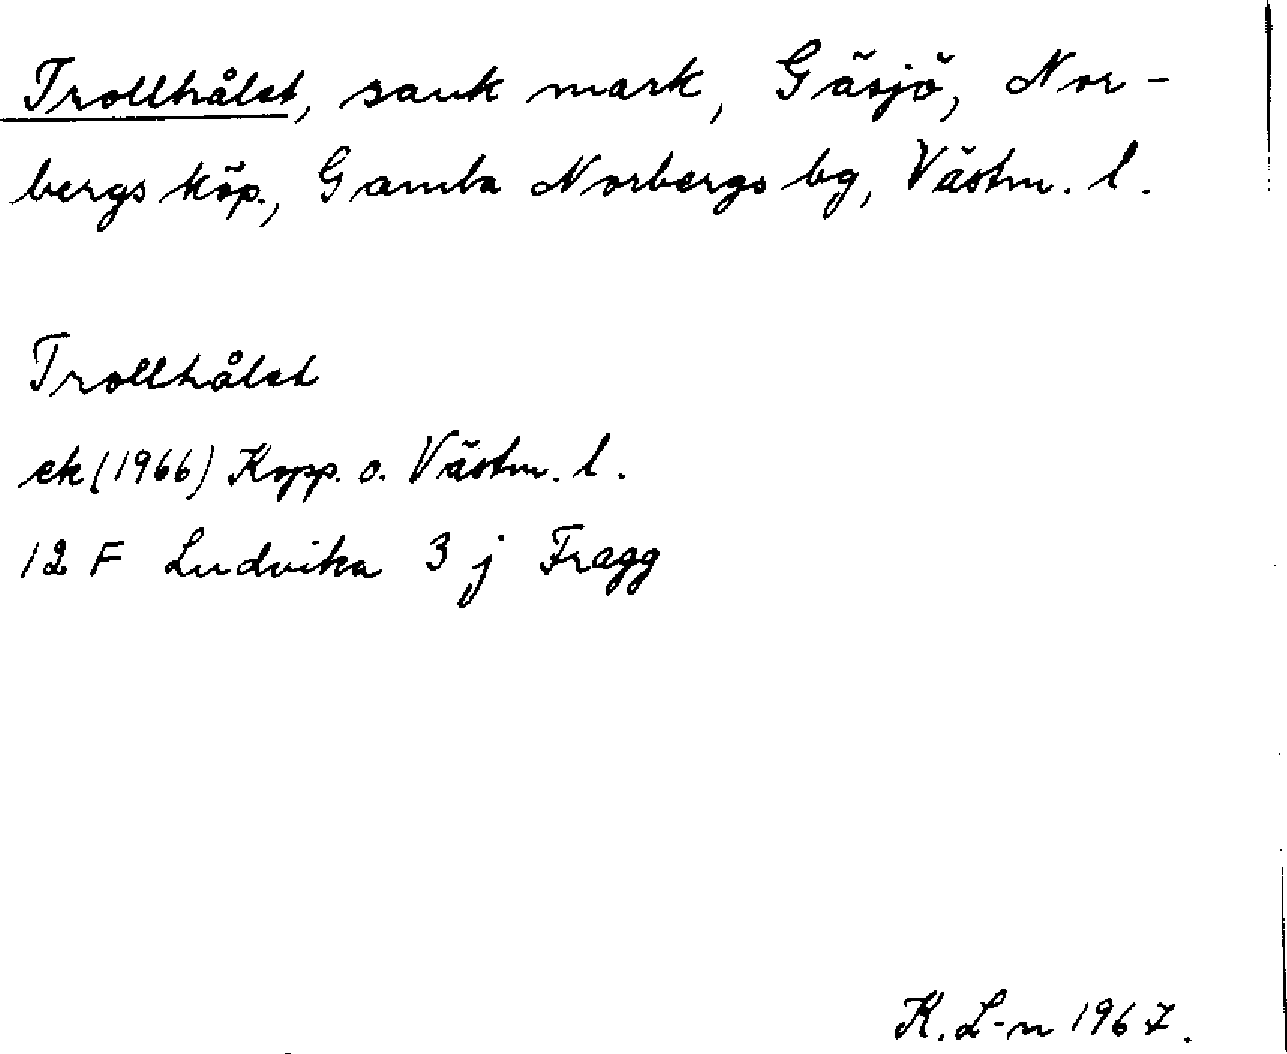 Trollhålet, sank mark, Gäsjö, Nor-
bergs köp., Gamla Norbergs bg, Västm. l.
Trollhålet
ek (1966) Kopp. o. Västm. l.
12 F Ludvika 3 j Fragg
K. L-n 1967.